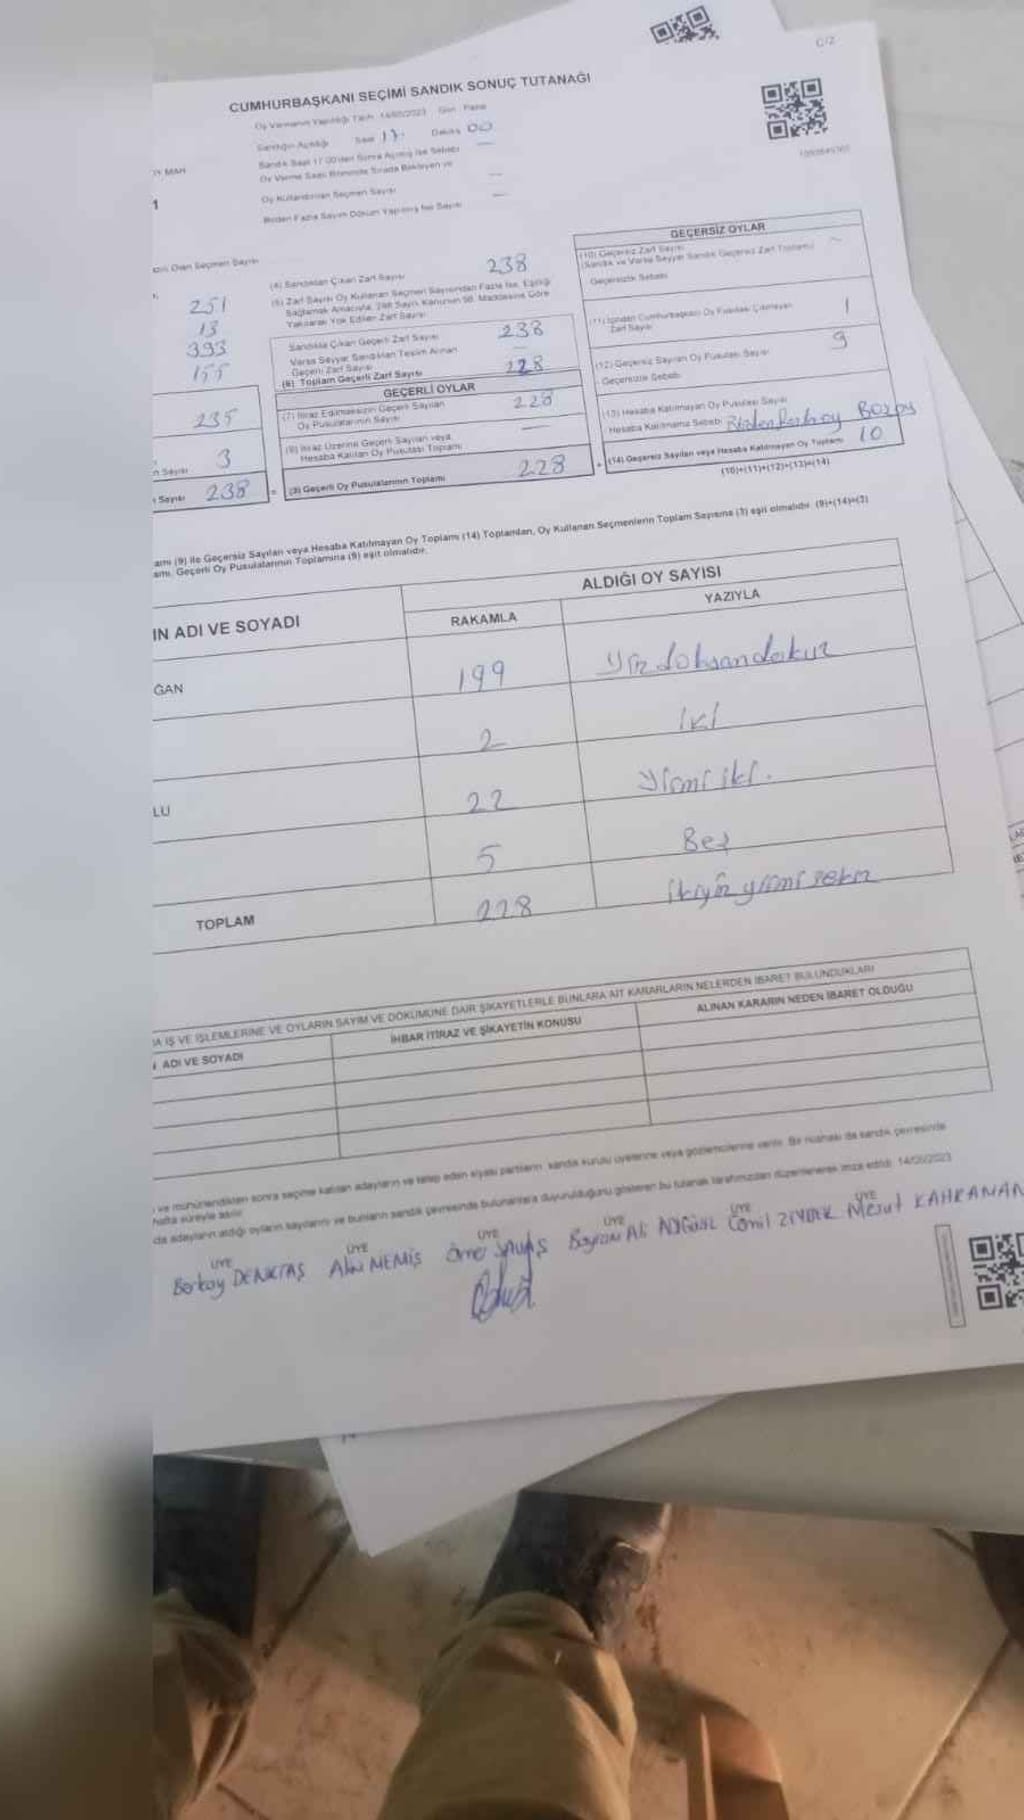 C/2
CUMHURBAŞKANI SEÇİMİ SANDIK SONUÇ TUTANAĞI
Oy Vermenin Yapıldığı Tarih 14/05/2023 Gün Pazar
Sandığın Açıldığı Saat 17 Dakika 00
Sandık Saat 17.00'den Sonra Açılmış İse Sebebi
Oy Verme Saati Bitiminde Sırada Bekleyen ve
Oy Kullandırılan Seçmen Sayısı
Birden Fazla Sayım Döküm Yapılmış İse Sayısı
MAH
1
Olan Seçmen Sayısı
251
13
393
155
235
n Sayısı 3
Sayısı 238
(4) Sandıktan Çıkan Zarf Sayısı 238
(5) Zarf Sayısı Oy Kullanan Seçmen Sayısından Fazla İse, Eşitliği
Sağlamak Amacıyla, 298 Sayılı Kanunun 98. Maddesine Göre
Yakılarak Yok Edilen Zarf Sayısı
Sandıkta Çıkan Geçerli Zarf Sayısı 238
Varsa Seyyar Sandıktan Teslim Alınan
Geçerli Zarf Sayısı
(6) Toplam Geçerli Zarf Sayısı 228
GEÇERLİ OYLAR
(7) İtiraz Edilmeksizin Geçerli Sayılan
Oy Pusulalarının Sayısı 228
(8) İtiraz Üzerine Geçerli Sayılan veya
Hesaba Katılan Oy Pusulası Toplamı
(9) Geçerli Oy Pusulalarının Toplamı 228
GEÇERSİZ OYLAR
(10) Geçersiz Zarf Sayısı
(Sandık ve Varsa Seyyar Sandık Geçersiz Zarf Toplamı)
Geçersizlik Sebebi
(11) İçinden Cumhurbaşkanı Oy Pusulası Çıkmayan
Zarf Sayısı 1
(12) Geçersiz Sayılan Oy Pusulası Sayısı 9
Geçersizlik Sebebi
(13) Hesaba Katılmayan Oy Pusulası Sayısı
Hesaba Katılmama Sebebi
(14) Geçersiz Sayılan veya Hesaba Katılmayan Oy Toplamı 10
(10)+(11)+(12)+(13)=(14)
amı (9) ile Geçersiz Sayılan veya Hesaba Katılmayan Oy Toplamı (14) Toplamları, Oy Kullanan Seçmenlerin Toplam Sayısına (3) eşit olmalıdır. (9)+(14)=(3)
amı, Geçerli Oy Pusulalarının Toplamına (9) eşit olmalıdır.
IN ADI VE SOYADI
ALDIĞI OY SAYISI
RAKAMLA YAZIYLA
ĞAN 199 yüzdoksandokuz
2 iki
LU 22 yirmi iki.
5 Beş
TOPLAM 228 ikiyüz yirmi sekiz
A İŞ VE İŞLEMLERİNE VE OYLARIN SAYIM VE DÖKÜMÜNE DAİR ŞİKAYETLERLE BUNLARA AİT KARARLARIN NELERDEN İBARET BULUNDUKLARI
ADI VE SOYADI İHBAR İTİRAZ VE ŞİKAYETİN KONUSU ALINAN KARARIN NEDEN İBARET OLDUĞU
ve mühürlendikten sonra seçime katılan adayların ve talep eden siyasi partilerin sandık kurulu üyelerine veya gözlemcilerine verilir. Bir nüshası da sandık çevresinde
hafta süreyle asılır.
da adayların aldığı oyların sayılarını ve bunların sandık çevresinde bulunanlara duyurulduğunu gösteren bu tutanak tarafımızdan düzenlenerek imza edildi. 14/05/2023
ÜYE ÜYE ÜYE ÜYE ÜYE ÜYE
Berkay DENKTAŞ Alin NEMİŞ Ömer SAVAŞ Bayram Ali ADIGÜZEL Cemil Mesut KAHRAMAN